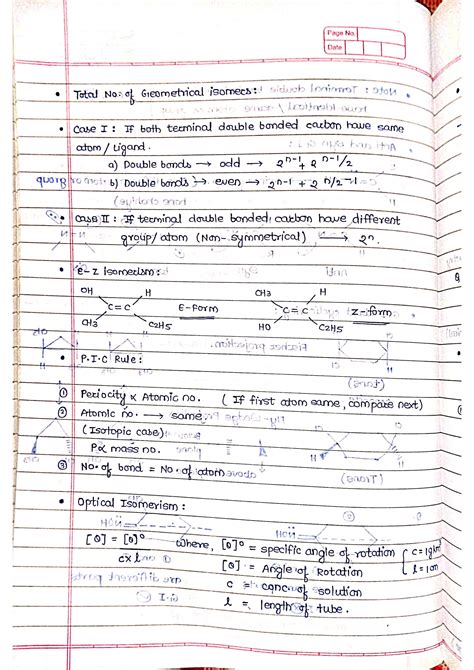 Page No.
Date
• Total No. of Geometrical isomers:
• Case I : If both terminal double bonded carbon have same
atom / Ligand.
a) Double bonds → odd → 2^n-1 + 2^n-1/2
b) Double bonds → even → 2^n-1 + 2^n/2-1
• Case II : If terminal double bonded carbon have different
group/ atom (Non-symmetrical) → 2^n.
• E-Z Isomerism:
OH H CH3 H
C=C E-form C=C Z-form
CH3 C2H5 HO C2H5
• P.I.C Rule:
① Periocity ∝ Atomic no. ( If first atom same, compare next)
② Atomic no. → same
(Isotopic case)
P∝ mass no.
③ No. of bond = No. of atom
• Optical Isomerism:
[θ] = [θ]° where, [θ]° = specific angle of rotation
c×l [θ] = Angle of Rotation
c = conc of solution
l = length of tube.